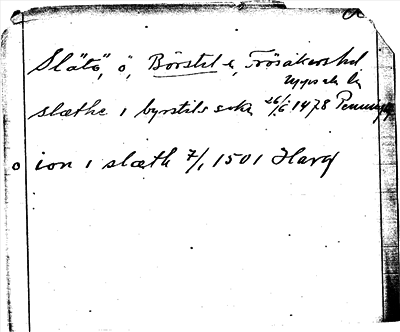 Slätö, ö, Börstel s, Frösåkers hd
Uppsala län
slæthe i byrstils sokn 26/6 1478
ion i slæth 7/1 1501 Harg